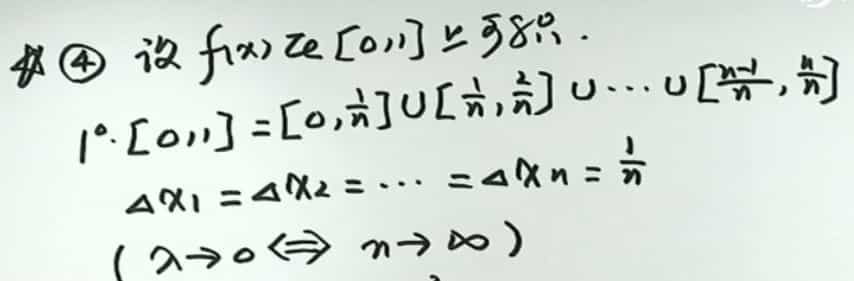 ※ ④ 设 f(x) 在 [0,1] 上可积.
1°. [0,1] = [0, 1/n] ∪ [1/n, 2/n] ∪ ⋯ ∪ [n-1/n, n/n]
△x1 = △x2 = ⋯ = △xn = 1/n
( λ→0 ⇔ n→∞ )